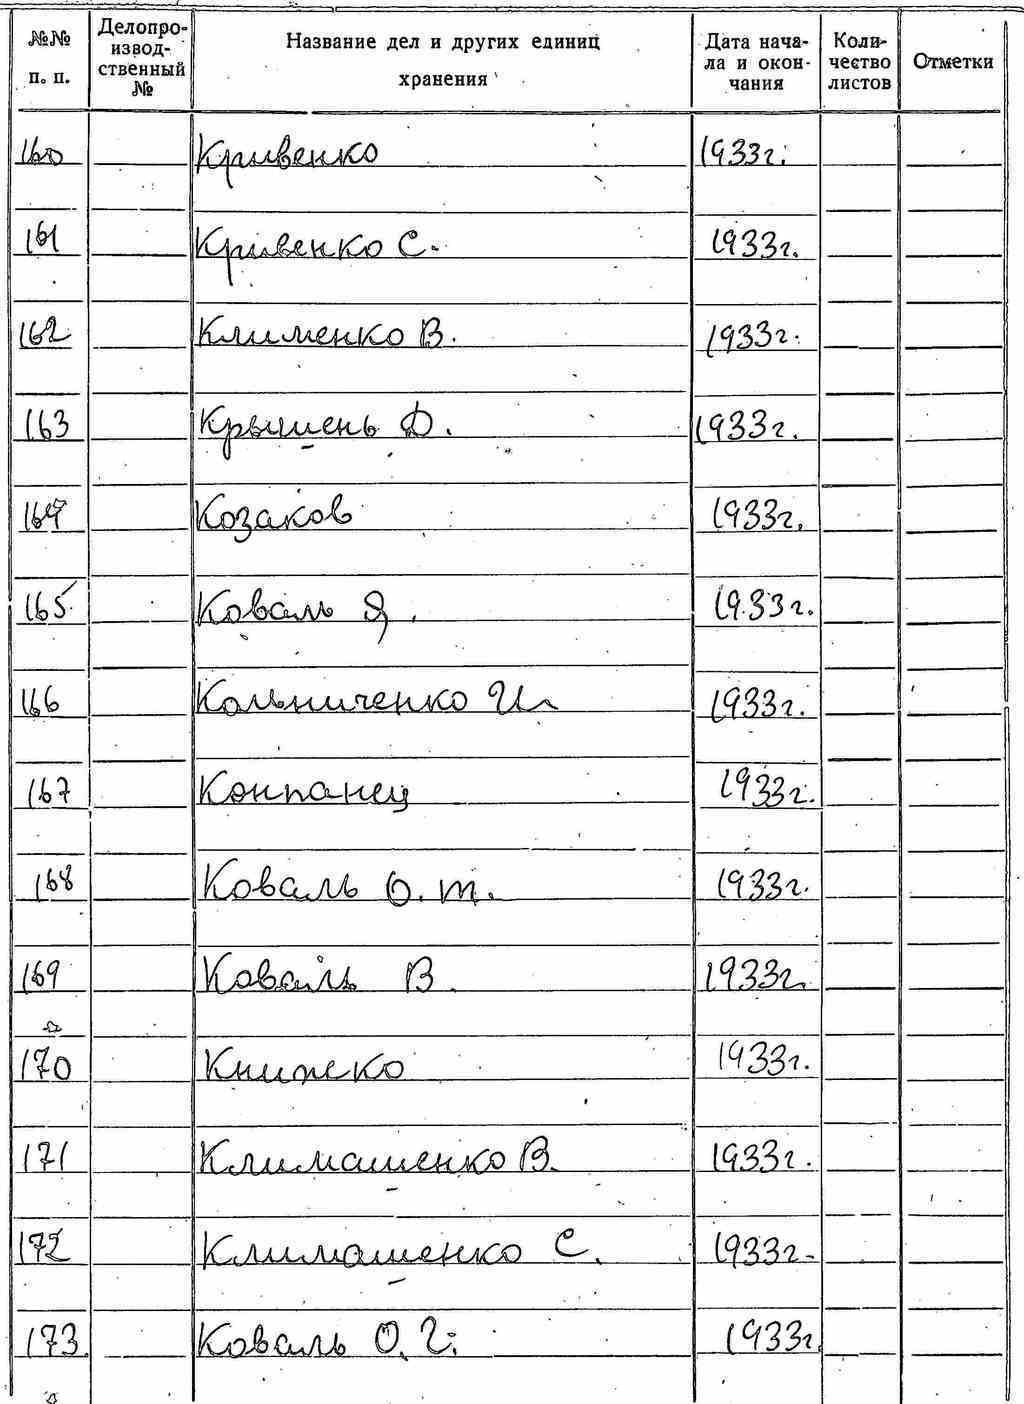 №№ п. п. Делопроизводственный № Название дел и других единиц хранения Дата начала и окончания Количество листов Отметки
160 Кривенко 1933г.
161 Кривенко С. 1933г.
162 Клименко В. 1933г.
163 Крышень Д. 1933г.
164 Козаков 1933г.
165 Коваль Я. 1933г.
166 Кольниченко И. 1933г.
167 Конпанец 1933г.
168 Коваль О. Т. 1933г.
169 Коваль В. 1933г.
170 Книжко 1933г.
171 Климашенко В. 1933г.
172 Климашенко С. 1933г.
173 Коваль О. Г. 1933г